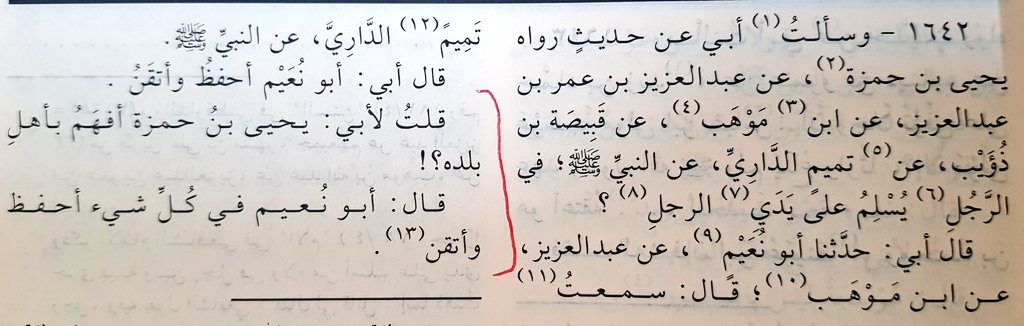 ١٦٤٢ - وسألتُ(١) أبي عن حديثٍ رواه
يحيى بن حمزة(٢)، عن عبدالعزيز بن عمر بن
عبدالعزيز، عن ابن(٣) مَوْهَب(٤)، عن قَبِيصَة بن
ذُؤَيْب، عن(٥) تميمٍ الدَّارِيِّ، عن النبيِّ ﷺ؛ في
الرَّجُلِ(٦) يُسْلِمُ على يَدَيِ(٧) الرجلِ(٨)؟
قال أبي: حدَّثنا أبو نُعَيْمٍ(٩)، عن عبدالعزيز،
عن ابن مَوْهَب(١٠)؛ قال: سمعتُ(١١)
تَمِيمً(١٢) الدَّارِيَّ، عن النبيِّ ﷺ.
قال أبي: أبو نُعَيْم أحفظُ وأتقَنُ.
قلتُ لأبي: يحيى بنُ حمزة أفهَمُ بأهلِ
بلده؟!
قال: أبو نُعيم في كُلِّ شيء أحفظ
وأتقن(١٣).